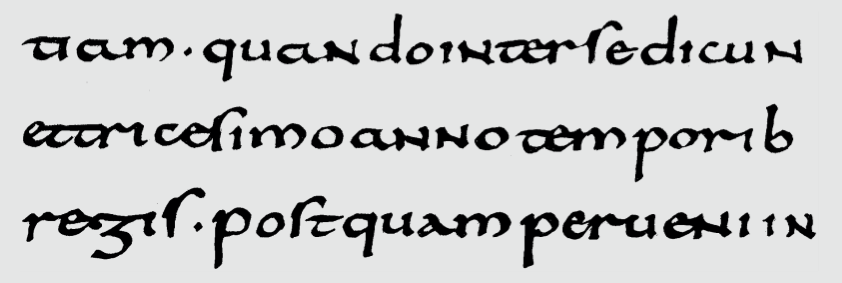 tiam. quando inter se dicun
et tricesimo anno temporib
regis. postquam perueni in